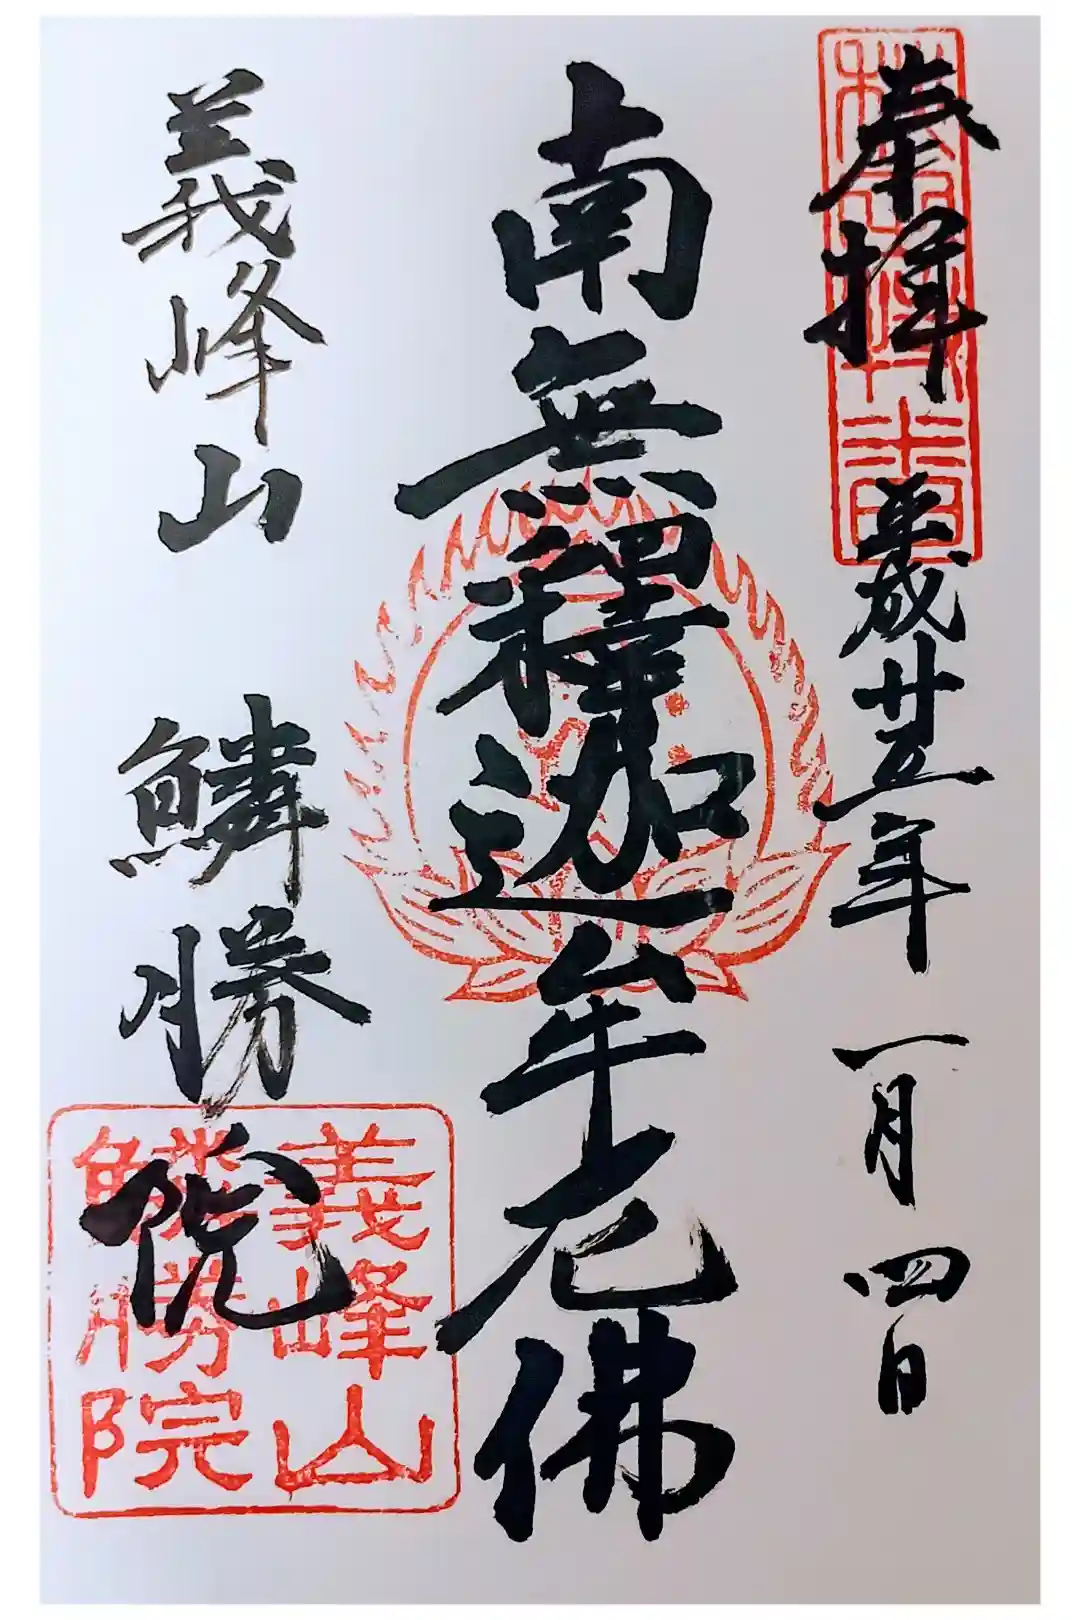 奉拝
平成廿五年一月四日
南無釋迦牟尼佛
義峰山 鱗勝院
義峰山
鱗勝院